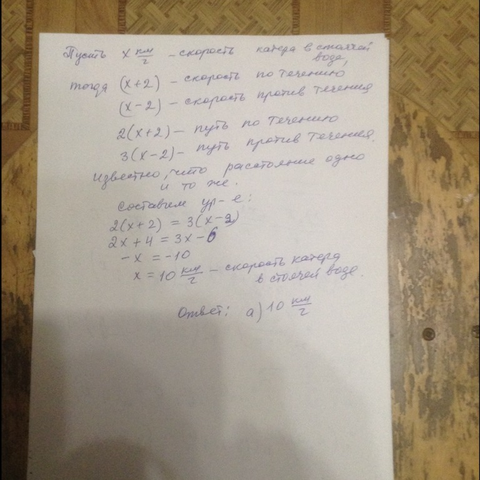 Пусть x км/г - скорость катера в стоячей
воде,
тогда (x+2) - скорость по течению
(x-2) - скорость против течения
2(x+2) - путь по течению
3(x-2) - путь против течения.
известно, что расстояние одно
и то же.
составим ур-е:
2(x+2) = 3(x-2)
2x+4 = 3x-6
-x = -10
x = 10 км/г - скорость катера
в стоячей воде.
Ответ: а) 10 км/г